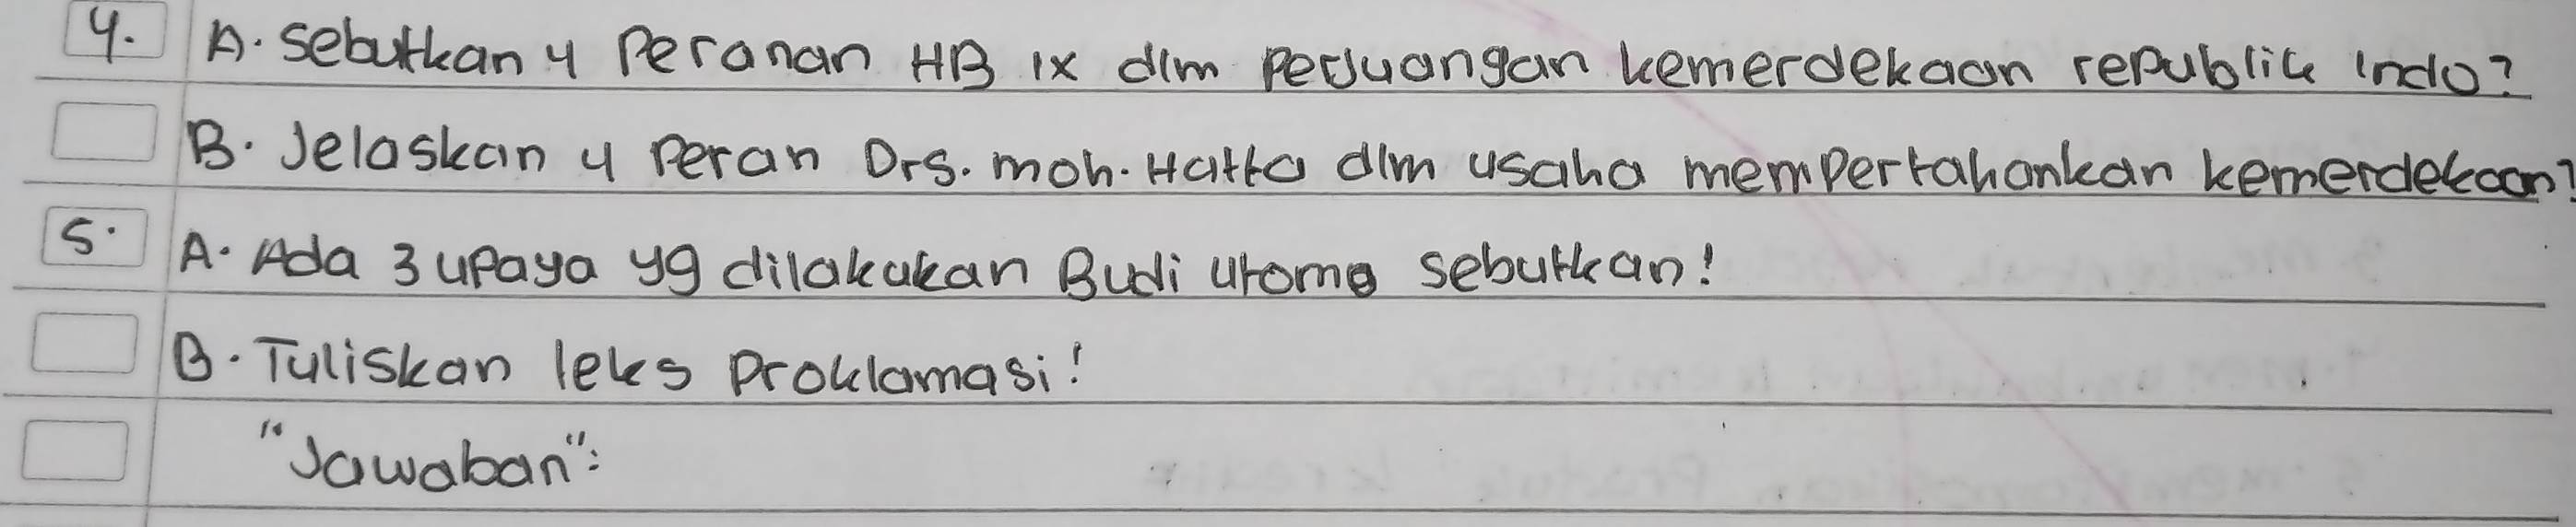 4. A. Sebutkan 4 Peranan HB IX dlm Perjuangan kemerdekaan republik Indo?
B. Jelaskan 4 Peran Drs. Moh. Hatta dlm usaha mempertahankan kemerdekaan?
5. A. Ada 3 upaya yg dilakukan Budi utomo sebutkan!
B. Tuliskan teks Proklamasi!
"Jawaban":